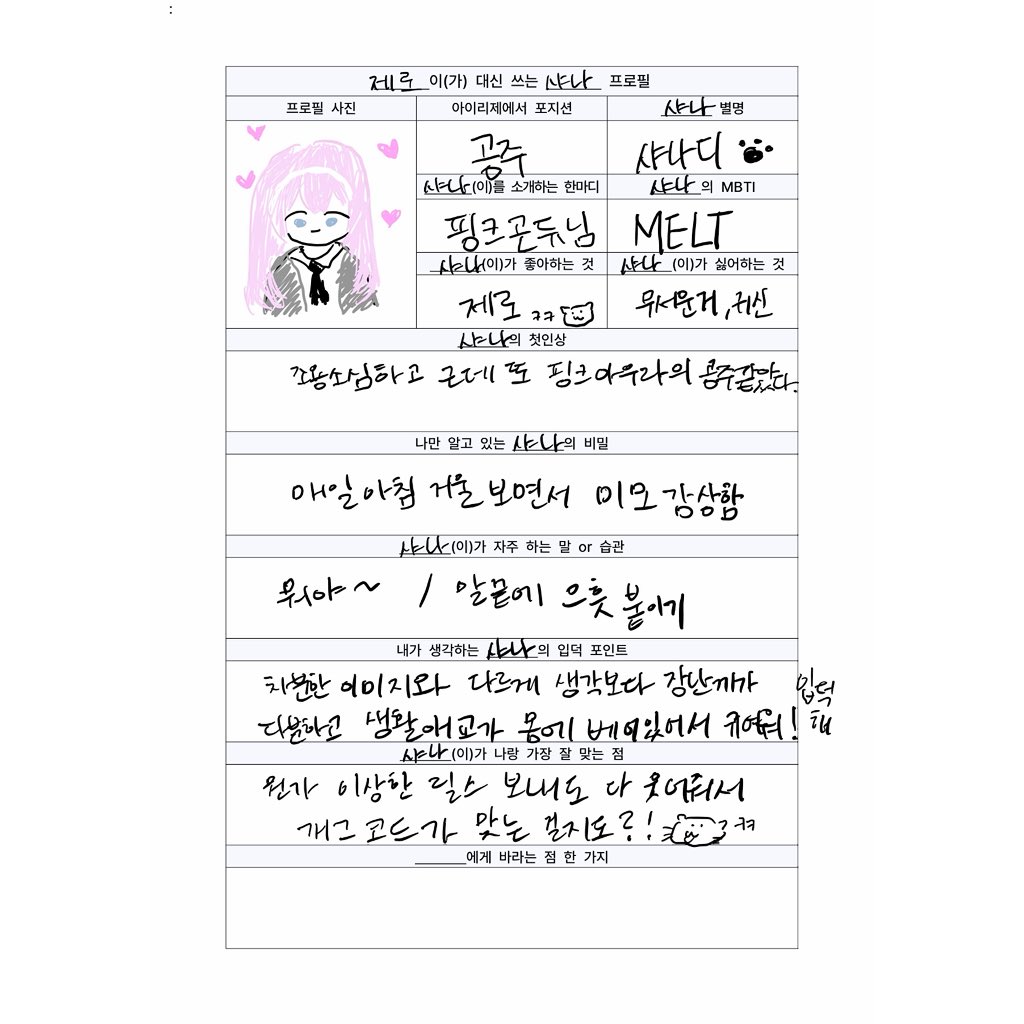 :
제로 이(가) 대신 쓰는 샤나 프로필
프로필 사진
아이리제에서 포지션
샤나 별명
공주
샤나디
샤나(이)를 소개하는 한마디
샤나의 MBTI
핑크곤듀님
MELT
샤나(이)가 좋아하는 것
샤나 (이)가 싫어하는 것
제로 ㅋㅋ
무서운거, 귀신
샤나의 첫인상
조용소심하고 근데 또 핑크아우라의 공주같았다.
나만 알고 있는 샤나의 비밀
매일아침 거울보면서 미모감상함
샤나(이)가 자주 하는 말 or 습관
뭐야~ / 말끝에 으흣 붙이기
내가 생각하는 샤나의 입덕 포인트
차분한 이미지와 다르게 생각보다 장난끼가
다분하고 생활애교가 몸에 베여있어서 귀여워! 입덕해
샤나(이)가 나랑 가장 잘 맞는 점
뭔가 이상한 릴스 보내도 다 웃어줘서
개그코드가 맞는 걸지도?! ㅋㅋ
______에게 바라는 점 한 가지